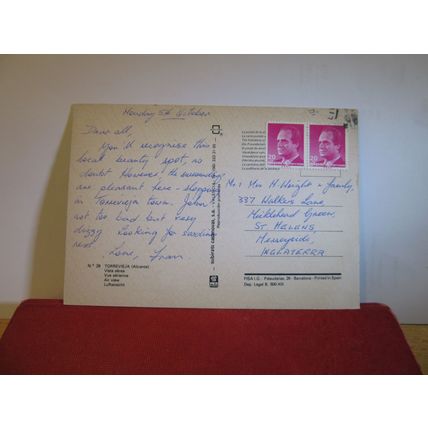 Monday 5th October
Dear all,
You'll recognise this
local beauty spot, no
doubt. However, the surroundings
are pleasant here - shopping
in Torrevieja town. John
not too bad but very
dizzy. Looking for swedins
next.
Love, Fran
Mr & Mrs H Wright & family,
337 Walkers Lane,
Micklehead Green,
ST HELENS,
Merseyside,
INGLATERRA
20
20
N.º 28 TORREVIEJA (Alicante)
Vista aérea
Vue aérienne
Air view
Luftansicht
FISA I.G. - Palaudarias, 26 - Barcelona - Printed in Spain
Dep. Legal B.